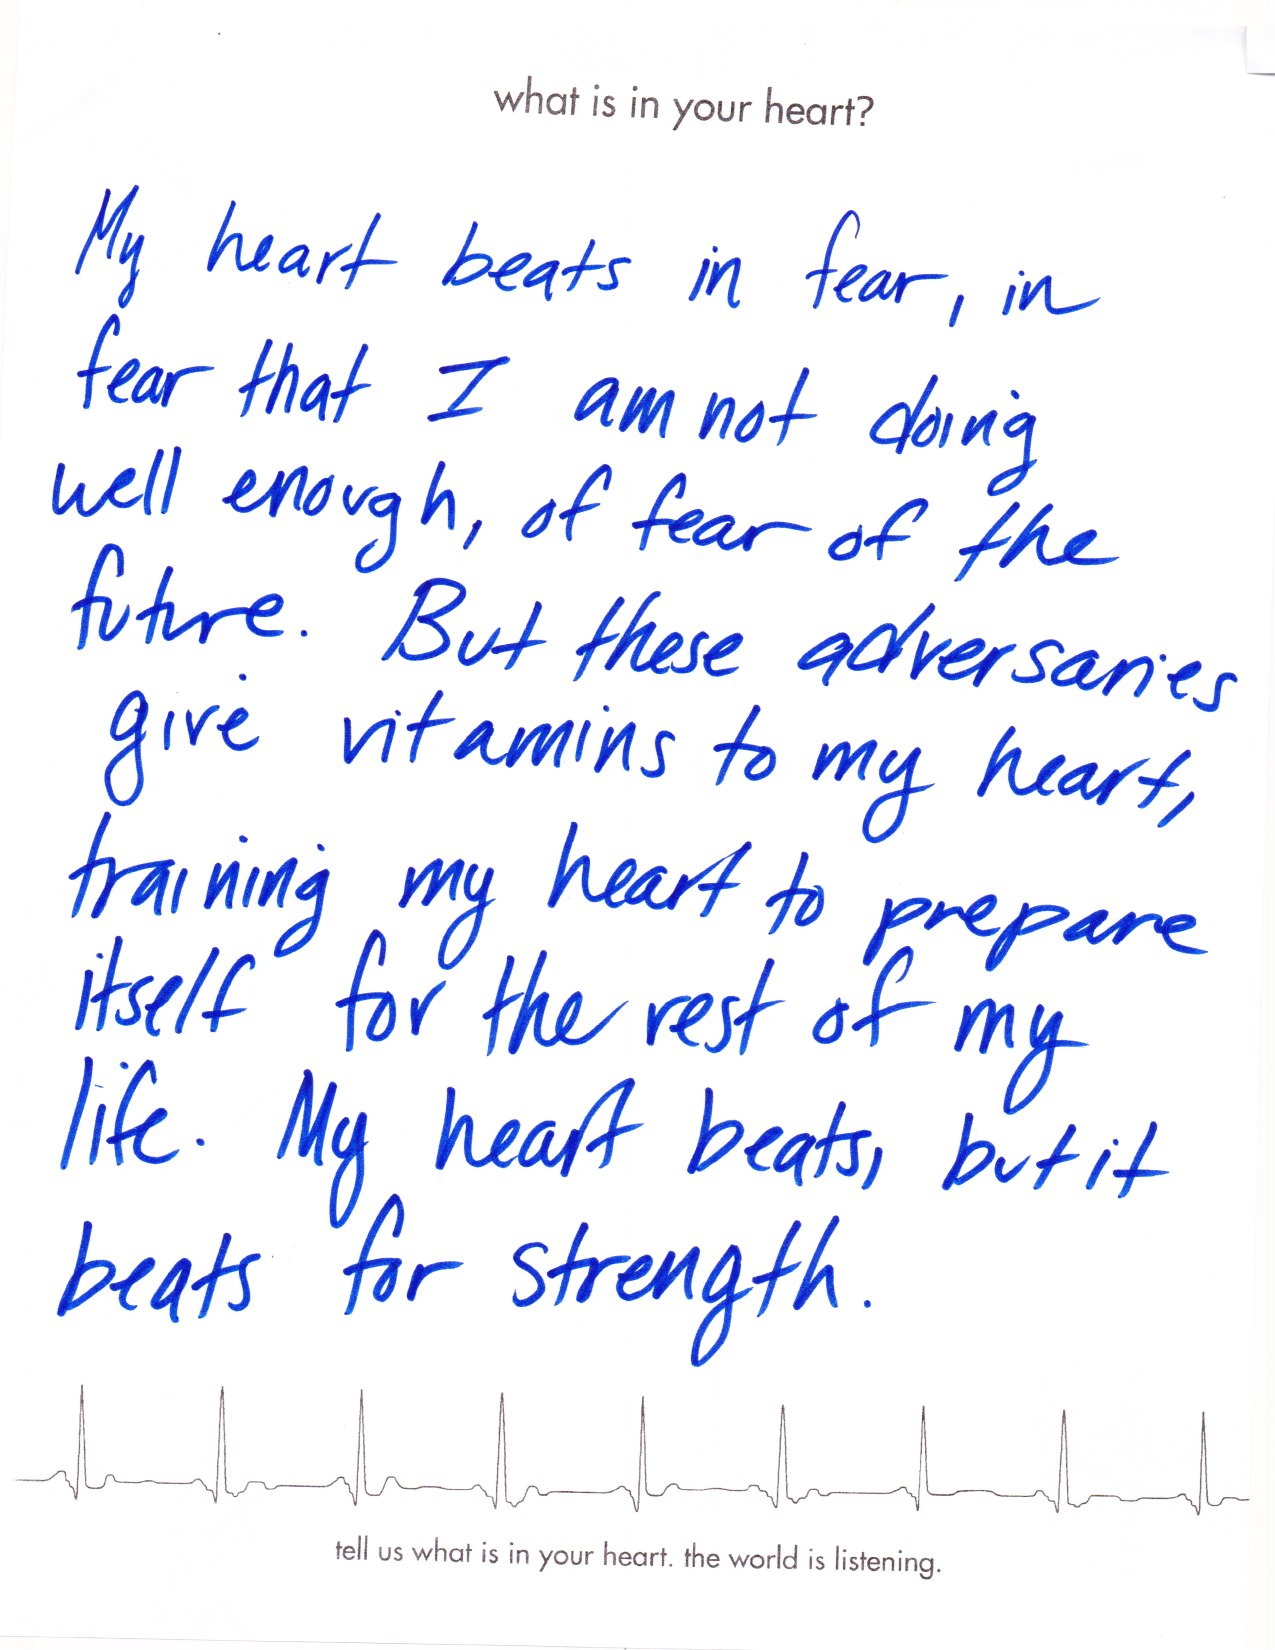 what is in your heart?
My heart beats in fear, in
fear that I am not doing
well enough, of fear of the
future. But these adversaries
give vitamins to my heart,
training my heart to prepare
itself for the rest of my
life. My heart beats, but it
beats for strength.
tell us what is in your heart. the world is listening.